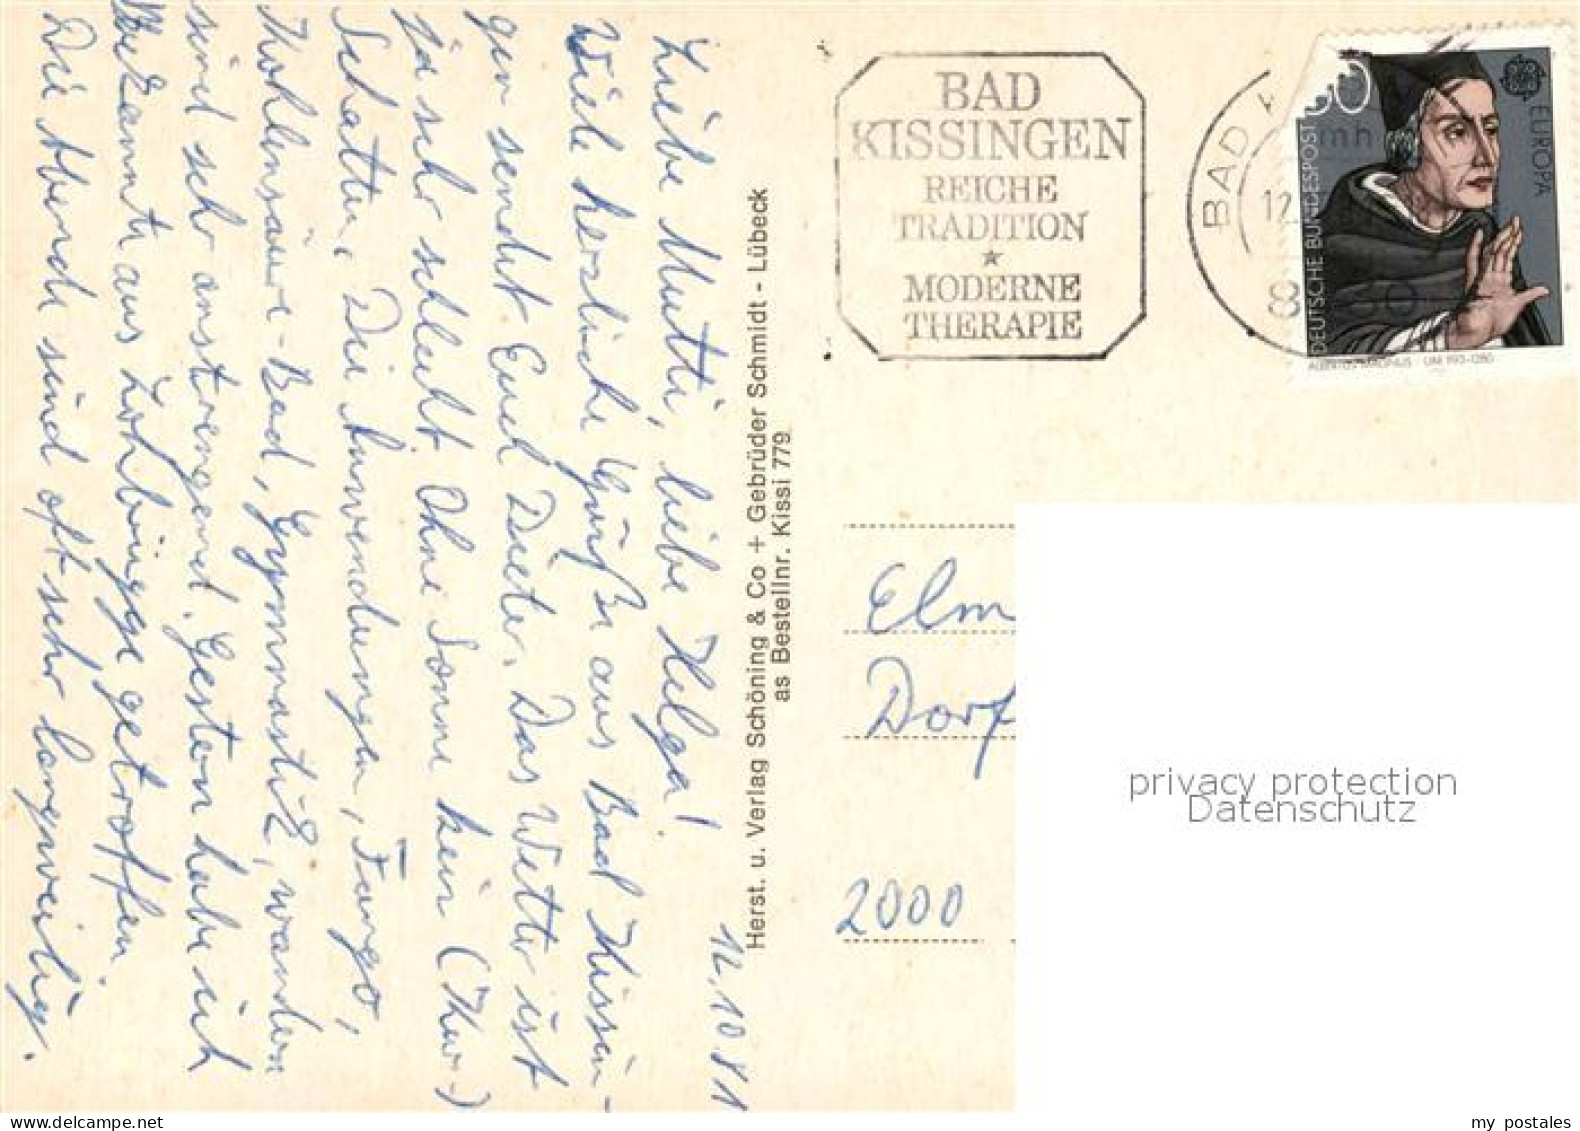 12.10.81
Liebe Mutti, liebe Helga!
Viele herzliche Grüße aus Bad Kissin-
gen sendet Euch Dieter. Das Wetter ist
ja sehr schlecht. Ohne Sonne kein (Kur-)
Schatten. Die Anwendungen, Fango,
Kohlensäure-Bad, Gymnastik, wandern
sind sehr anstrengend. Gestern habe ich
Bekannte aus getroffen.
Die Abende sind oft sehr langweilig.
Herst. u. Verlag Schöning & Co + Gebrüder Schmidt - Lübeck
as Bestellnr. Kissi 779
BAD
KISSINGEN
REICHE
TRADITION
★
MODERNE
THERAPIE
BAD
12
mh
EUROPA
DEUTSCHE BUNDESPOST
ALBERTUS MAGNUS · UM 1193-1280
Elm
Dorf
2000
privacy protection
Datenschutz
my postales